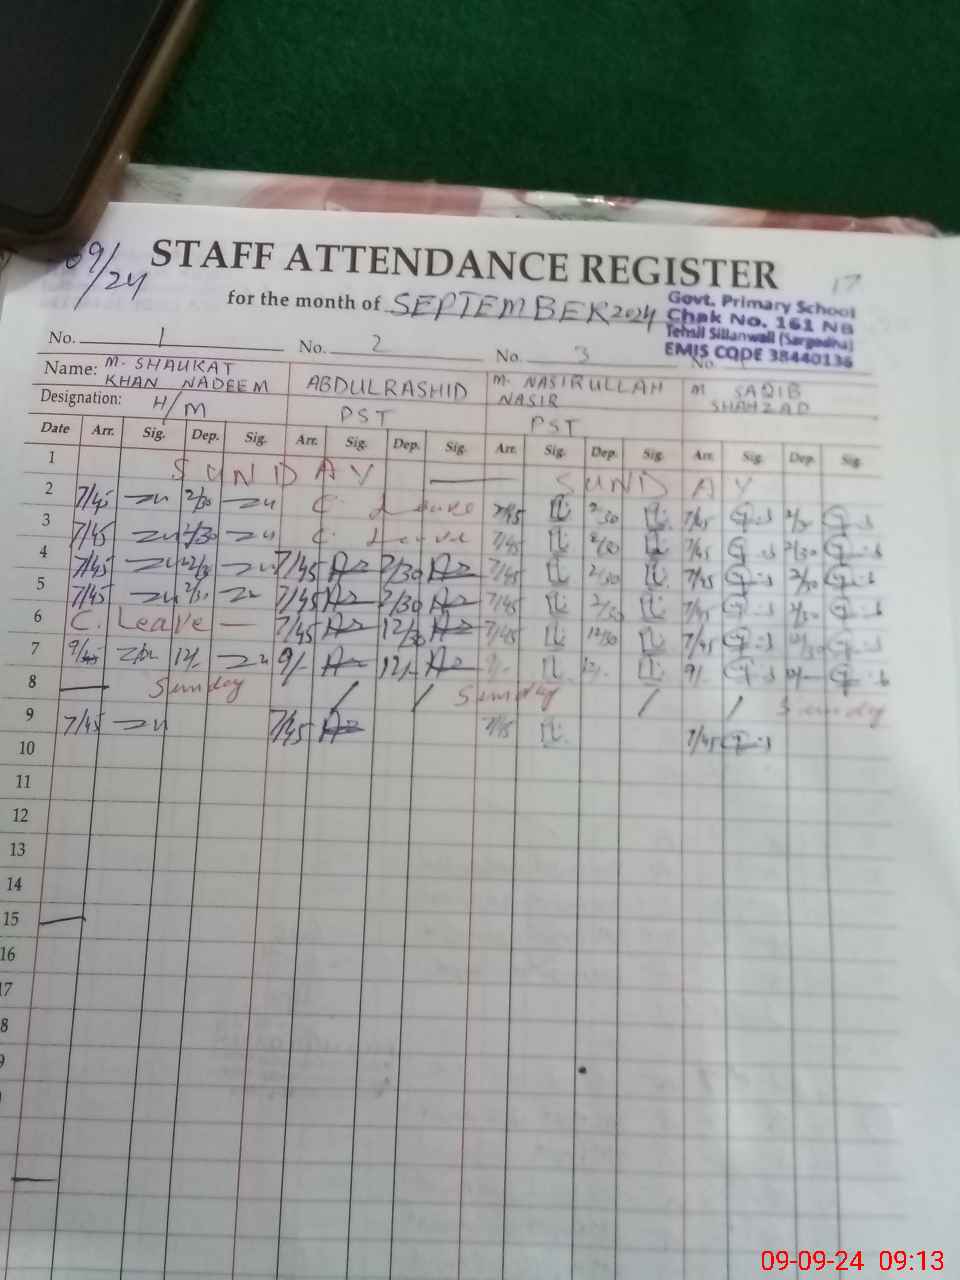 09/24
STAFF ATTENDANCE REGISTER 17
for the month of SEPTEMBER 2024
Govt. Primary School
Chak No. 161 NB
Tehsil Sillanwali (Sargodha)
EMIS CODE 38440136
No. 1 No. 2 No. 3 No.
Name: M. SHAUKAT KHAN NADEEM ABDULRASHID M. NASIRULLAH NASIR M SAQIB SHAHZAD
Designation: H/M PST PST
Date Arr. Sig. Dep. Sig. Arr. Sig. Dep. Sig. Arr. Sig. Dep. Sig. Arr. Sig. Dep. Sig.
1 SUNDAY — SUNDAY
2 7/45 2/30 C. Leave 7/45 2/30 7/45 2/30
3 7/45 2/30 C. Leave 7/45 2/30 7/45 2/30
4 7/45 2/30 7/45 2/30 7/45 2/30 7/45 2/30
5 7/45 2/30 7/45 2/30 7/45 2/30 7/45 2/30
6 C. Leave — 7/45 12/30 7/45 12/30 7/45 12/30
7 9/ 12/- 9/- 12/- 9/- 12/- 9/- 12/-
8 — Sunday / / Sunday / / Sunday
9 7/45 7/45 7/45 7/45
10
11
12
13
14
15
16
17
8
9
09-09-24 09:13